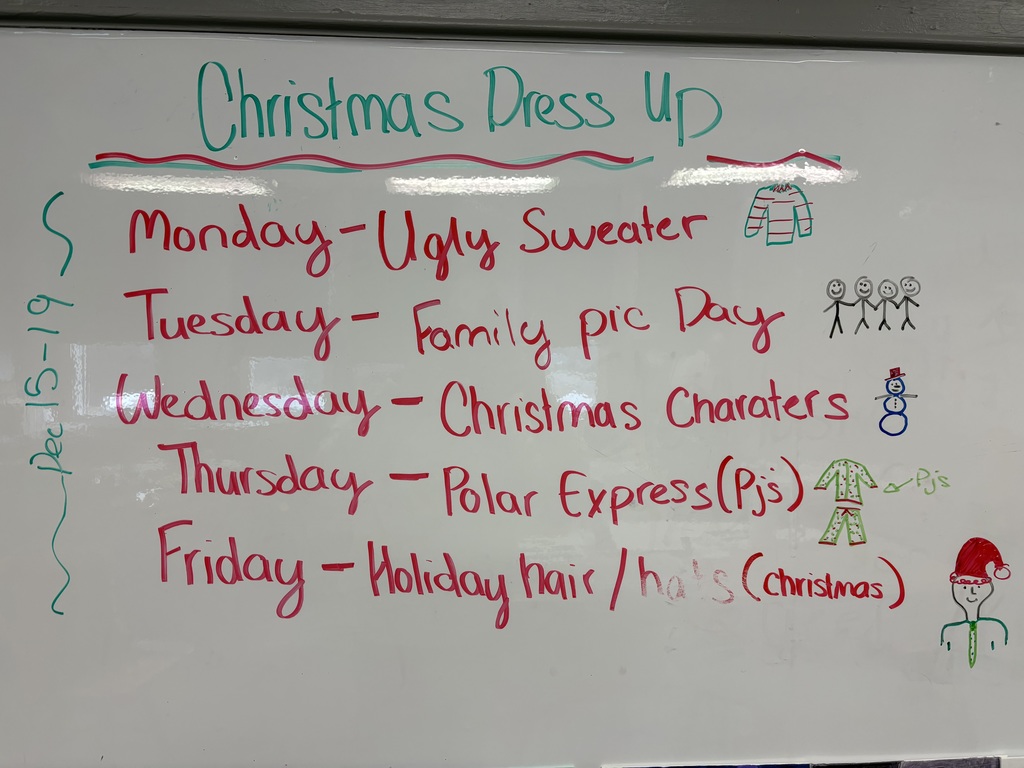 Christmas Dress Up
Dec 15-19
Monday - Ugly Sweater
Tuesday - Family pic Day
Wednesday - Christmas Charaters
Thursday - Polar Express (Pj's)
Pj's
Friday - Holiday hair / hats (christmas)